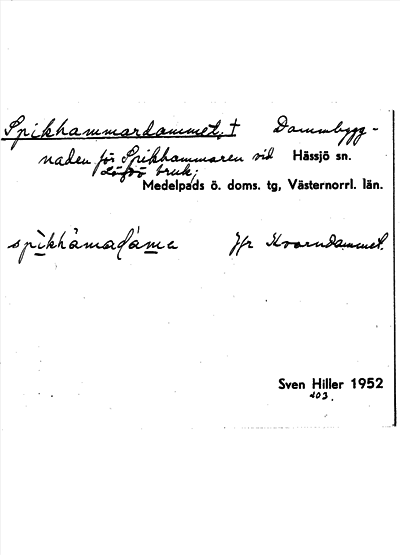 Spikhammardammet, † Dammbygg-
naden för Spikhammaren vid Hässjö sn.
Lögdö bruk;
Medelpads ö. doms. tg, Västernorrl. län.
Jfr Kvarndammet.
Sven Hiller 1952
403.